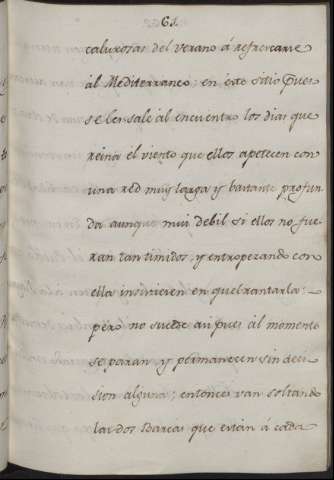 61.
calurosas del verano á refrescarse
al Mediterraneo: en este sitio pues
se les sale al encuentro los dias que
reina el viento que ellos apetecen con
una red muy larga y bastante profun
da aunque mui debil si ellos no fue
ran tan timidos, y entropezando con
ella insistiesen en quebrantarla:
pero no sucede asi pues al momento
se paran, y permanecen sin deci
sion alguna; entonces van soltando
las dos Barcas que están á cada